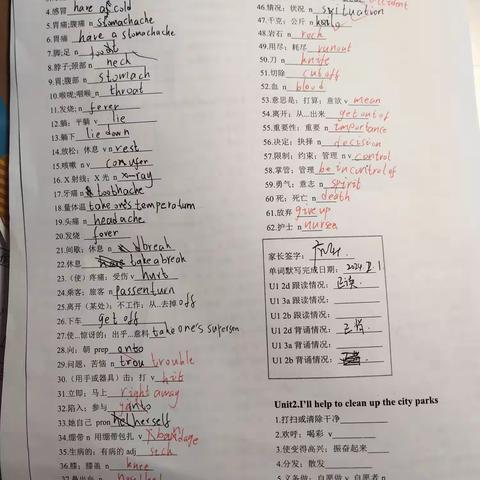 4.感冒 have a cold
5.胃痛;腹痛 n stomachache
6.胃痛 have a stomachache
7.脚;足 n foot
8.脖子;颈部 n neck
9.胃;腹部 n stomach
10.喉咙;咽喉 n throat
11.发烧; n fever
12.躺;平躺 v lie
13.躺下 lie down
14.放松;休息 v n rest
15.咳嗽 n v
16.X 射线;X 光 n X-ray
17.牙痛 n toothache
18.量体温 take one's temperature
19.头痛 n headache
20.发烧 fever
21.间歇;休息 n break
22.休息 take a break
23.(使)疼痛;受伤 v hurt
24.乘客;旅客 n
25.离开(某处);不工作;从...去掉 off
26.下车 get off
27.使...惊讶的;出乎...意料 take one's
28.向;朝 prep onto
29.问题,苦恼 n trou trouble
30.(用手或器具)击;打 v hit
31.立即;马上 right away
32.陷入;参与
33.她自己 pron herself
34.绷带 n 用绷带包扎 v
35.生病的;有病的 adj sick
36.膝;膝盖 n knee
46.情况;状况 n situation
47.千克;公斤 n kilo
48.岩石 n rock
49.用尽;耗尽 runout
50.刀 n knife
51.切除 cut off
52.血 n blood
53.意思是;打算;意欲 v mean
54.离开;从...出来 get out of
55.重要性;重要 n importance
56.决定;抉择 n decision
57.限制;约束;管理 n v control
58.掌管;管理 be in control of
59.勇气;意志 n spirit
60.死;死亡 n death
61.放弃 give up
62.护士 n nurse
家长签字:
单词默写完成日期:
U1 2d 跟读情况: 已读
U1 3a 跟读情况:
U1 2b 跟读情况:
U1 2d 背诵情况: 已背
U1 3a 背诵情况:
U1 2b 背诵情况:
Unit2.I'll help to clean up the city parks
1.打扫或清除干净
2.欢呼;喝彩 v
3.使变得高兴;振奋起来
4.分发;散发
5.义务做;自愿做 v 自愿者 n